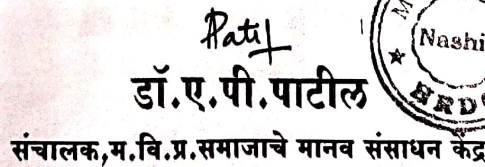 Patil
Nashi
HRD
डॉ.ए.पी.पाटील
संचालक,म.वि.प्र.समाजाचे मानव संसाधन केंद्र